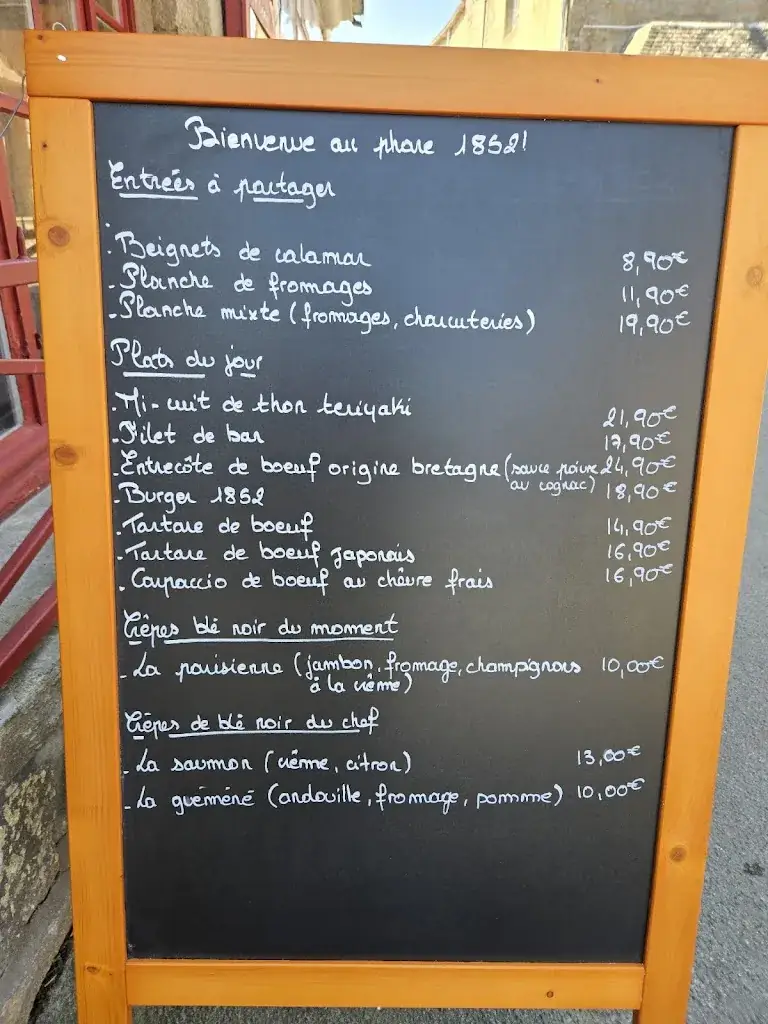 Bienvenue au phare 1852!
Entrées à partager
. Beignets de calamar 8,90€
- Planche de fromages 11,90€
- Planche mixte (fromages, charcuteries) 19,90€
Plats du jour
. Mi-cuit de thon teriyaki 21,90€
- Filet de bar 17,90€
- Entrecôte de boeuf origine bretagne (sauce poivre 24,90€
au cognac)
- Burger 1852 18,90€
- Tartare de boeuf 14,90€
- Tartare de boeuf japonais 16,90€
. Carpaccio de boeuf au chèvre frais 16,90€
Crêpes blé noir du moment
- La parisienne (jambon, fromage, champignons 10,00€
à la crème)
Crêpes de blé noir du chef
- La saumon (crème, citron) 13,00€
- La guéméné (andouille, fromage, pomme) 10,00€